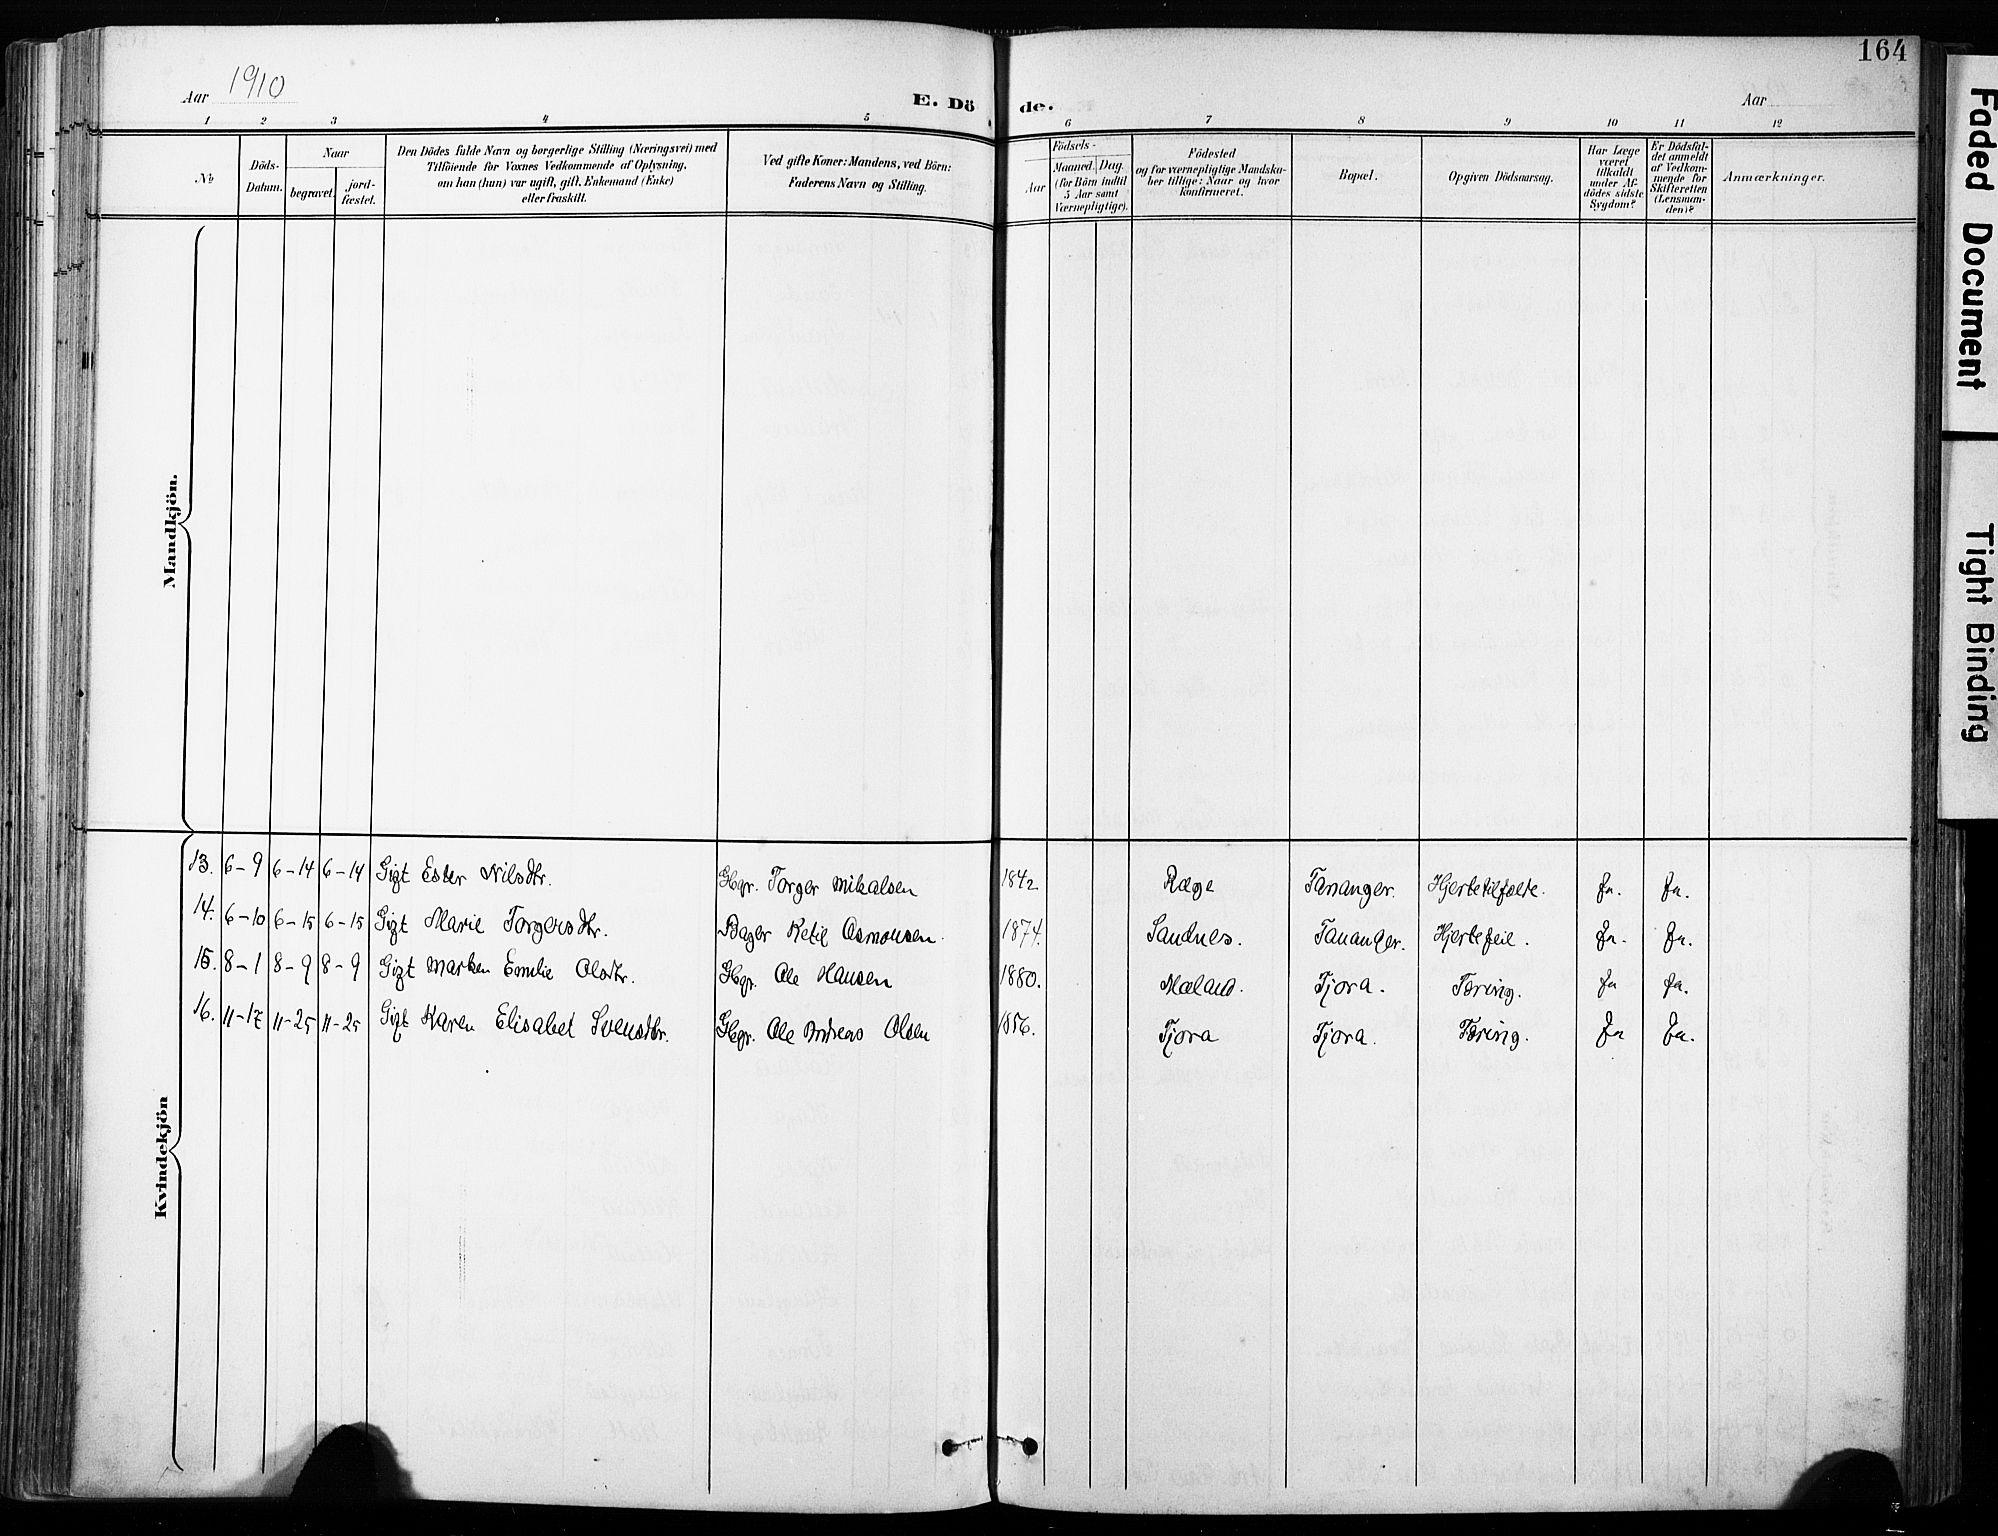 164
Aar 1910
E. Dö de.
Aar
1 2 3 4 5 6 7 8 9 10 11 12
No
Döds-
Datum.
Naar
begravet.
jord-
fæstet.
Den Dödes fulde Navn og borgerlige Stilling (Næringsvei) med
Tilföiende for Voxnes Vedkommende af Oplysning,
om han (hun) var ugift, gift, Enkemand (Enke)
eller fraskilt.
Ved gifte Koner: Mandens, ved Börn:
Faderens Navn og Stilling.
Födsels-
Aar
Maaned. Dag.
(for Börn indtil
5 Aar samt
Værnepligtige).
Födested
og for værnepligtige Mandska-
ber tillige: Naar og hvor
konfirmeret.
Bopæl.
Opgiven Dödsaarsag.
Har Læge
været
tilkaldt
under Af-
dödes sidste
Sygdom?
Er Dödsfal-
det anmeldt
af Vedkom-
mende for
Skifteretten
(Lensman-
den)?
Anmærkninger.
Mandkjön.
Kvindekjön
13. 6-9 6-14 6-14 Gift Ester Nilsdtr. Gbgr. Torger Mikalsen 1842 Ræge Tananger. Hjertetilfælte. Ja. Ja.
14. 6-10 6-15 6-15 Gift Marie Torgersdtr. Bager Ketil Osmonsen. 1874. Sandnes. Tananger. Hjertefeil. Ja. Ja.
15. 8-1 8-9 8-9 Gift Marken Emilie Olsdtr. Gbgr. Ole Hansen 1880. Meland. Tjora. Tæring. Ja Ja.
16. 11-17 11-25 11-25 Gift Karen Elisabet Svensdtr. Gbgr. Ole Andreas Olsen 1856. Tjora Tjora. Tæring. Ja Ja.
Faded Document
Tight Binding